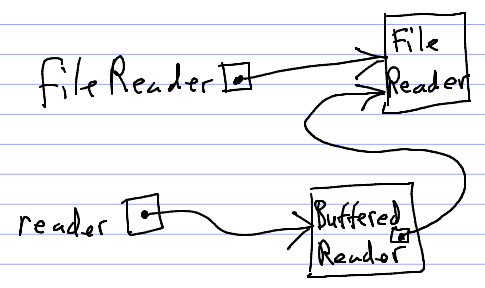 File
Reader
fileReader
reader
Buffered
Reader